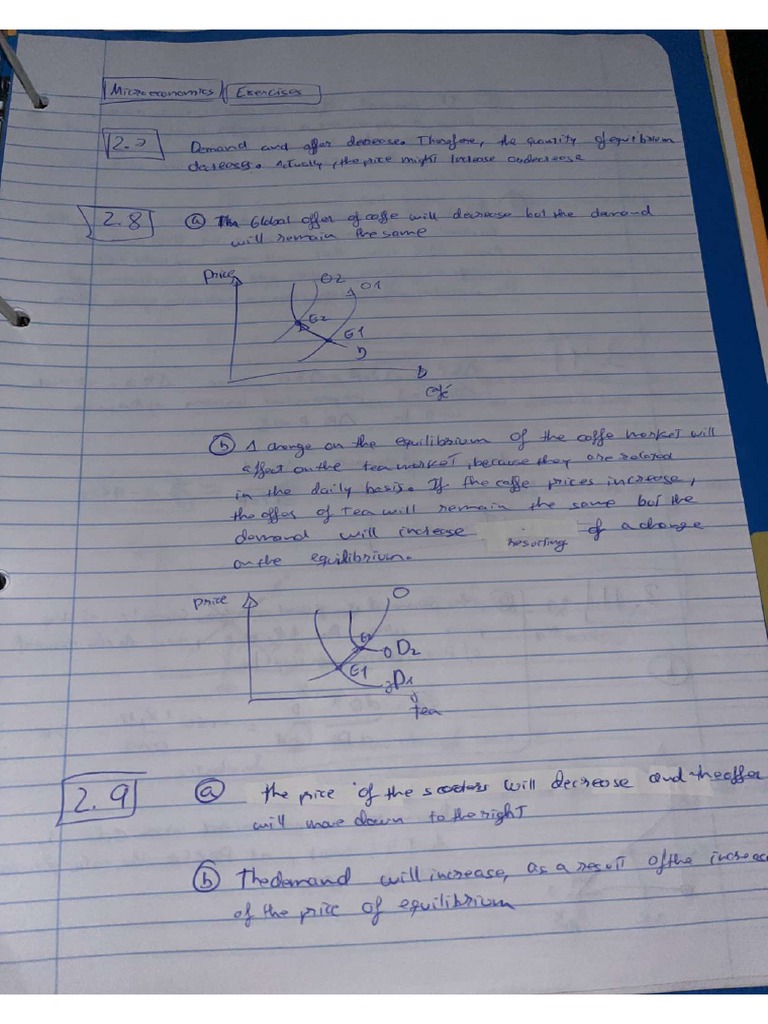 Microeconomics Exercises
2.7 Demand and offer decrease. Therefore, the quantity of equilibrium
decreases. Actually, the price might increase or decrease
2.8 a The Global offer of coffe will decrease but the demand
will remain the same
Price
O2
O1
E2
E1
D
b A change on the equilibrium of the coffe market will
affect on the tea market, because they are related
in the daily basis. If the coffe prices increase,
the offer of tea will remain the same but the
demand will increase resorting of a change
on the equilibrium.
price
O
D2
E1
D1
tea
2.9 a the price of the scooters will decrease and the offer
will move down to the right
b The demand will increase, as a result of the increase
of the price of equilibrium